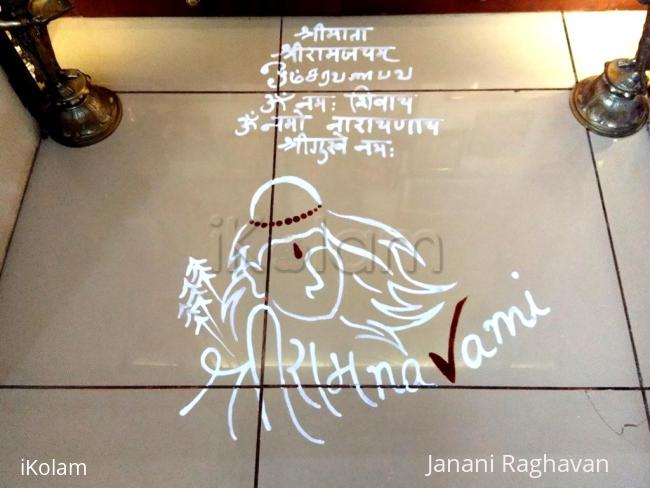 श्रीमाता
श्रीरामजयम्
ஓம்சரவணபவ
ॐ नमः शिवाय
ॐ नमो नारायणाय
श्रीगुरुवे नमः
iKolam
श्रीराम navami
iKolam
Janani Raghavan